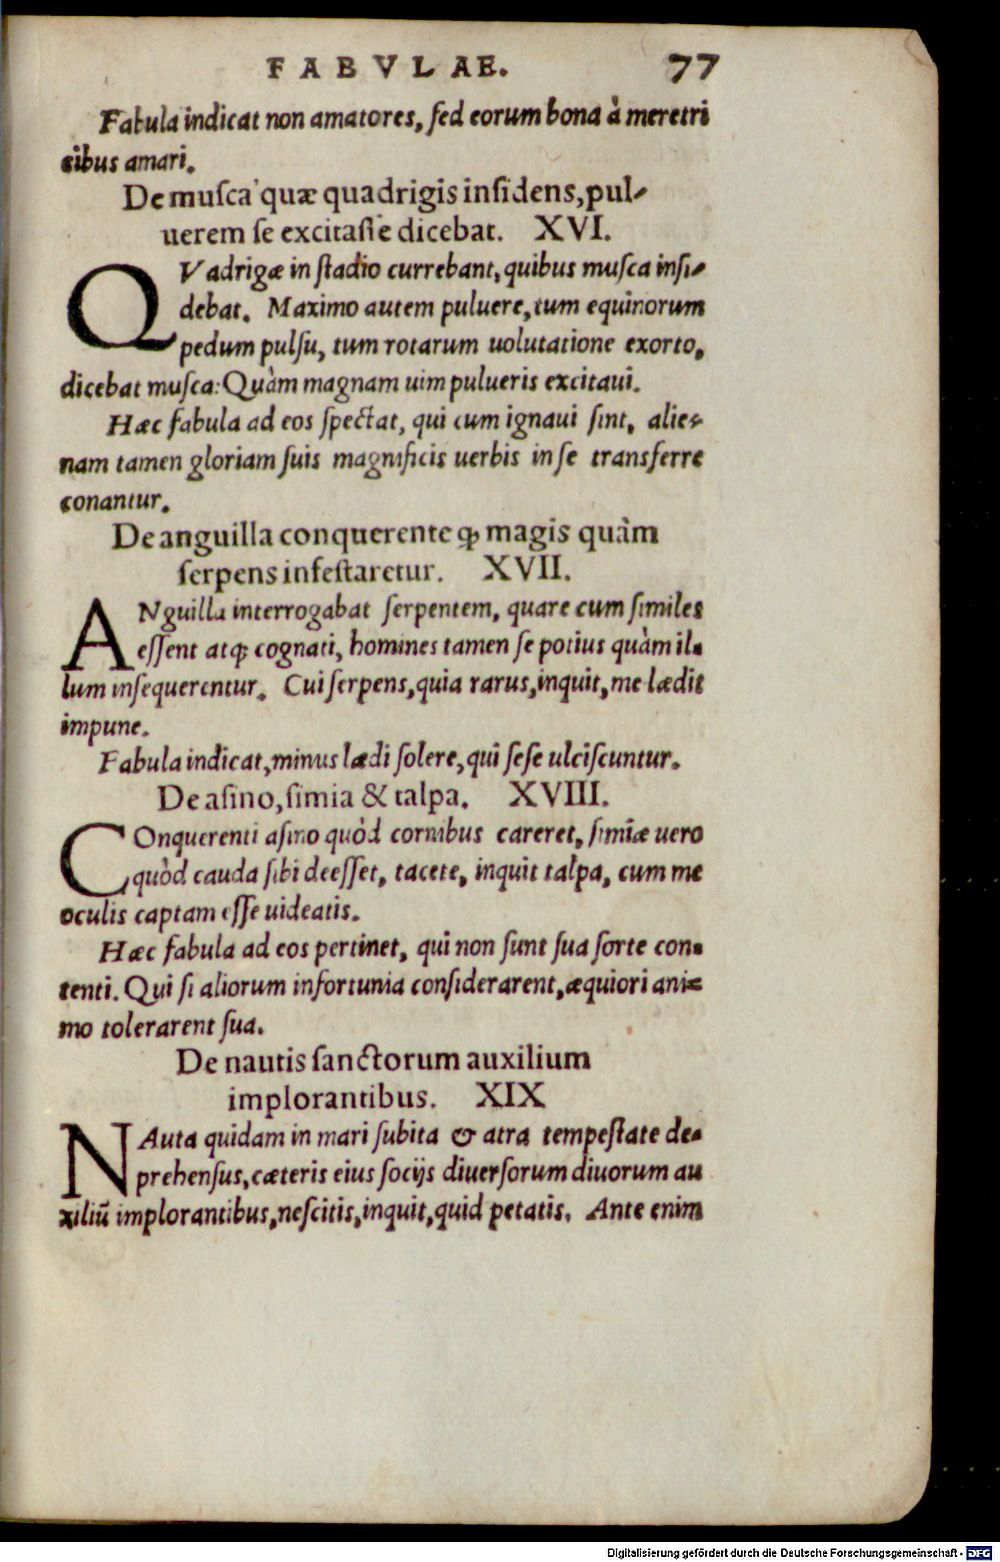 FABVLAE. 77
Fabula indicat non amatores, sed eorum bona à meretri
cibus amari.
De musca quæ quadrigis insidens, pul-
uerem se excitasse dicebat. XVI.
QVadrigæ in stadio currebant, quibus musca insi-
debat. Maximo autem puluere, tum equinorum
pedum pulsu, tum rotarum uolutatione exorto,
dicebat musca: Quàm magnam uim pulueris excitaui.
Hæc fabula ad eos spectat, qui cum ignaui sint, alie-
nam tamen gloriam suis magnificis uerbis in se transferre
conantur.
De anguilla conquerente ꝙ magis quàm
serpens infestaretur. XVII.
ANguilla interrogabat serpentem, quare cum similes
essent atq; cognati, homines tamen se potius quàm il-
lum insequerentur. Cui serpens, quia rarus, inquit, me lædit
impune.
Fabula indicat, minus lædi solere, qui sese ulciscuntur.
De asino, simia & talpa. XVIII.
COnquerenti asino quòd cornibus careret, simiæ uero
quòd cauda sibi deesset, tacete, inquit talpa, cum me
oculis captam esse uideatis.
Hæc fabula ad eos pertinet, qui non sunt sua sorte con-
tenti. Qui si aliorum infortunia considerarent, æquiori ani-
mo tolerarent sua.
De nautis sanctorum auxilium
implorantibus. XIX
NAuta quidam in mari subita & atra tempestate de-
prehensus, cæteris eius socijs diuersorum diuorum au
xiliū implorantibus, nescitis, inquit, quid petatis. Ante enim
Digitalisierung gefördert durch die Deutsche Forschungsgemeinschaft - DFG